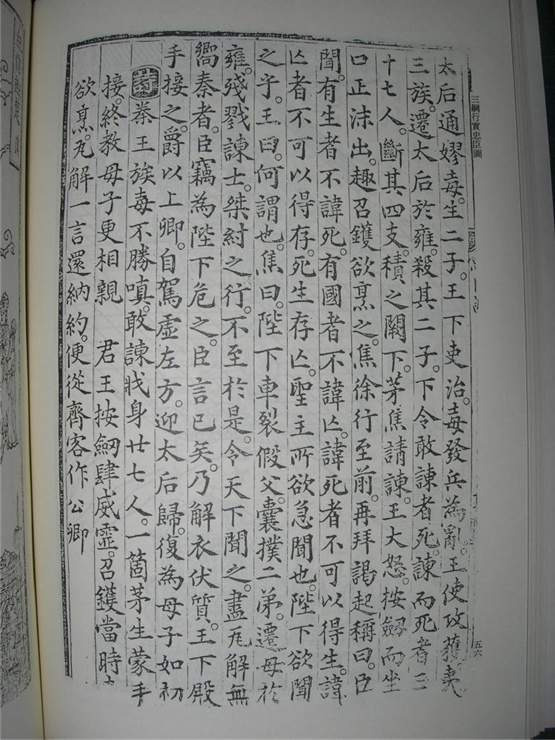 三綱行實忠臣圖
五六
太后通嫪毐。生二子。王下吏治。毐發兵為亂。王使攻獲夷
三族。遷太后於雍。殺其二子。下令敢諫者死。諫而死者二
十七人。斷其四支。積之闕下。茅焦請諫。王大怒。按劒而坐
口正沫出。趣召鑊欲烹之。焦徐行至前。再拜謁起稱曰。臣
聞。有生者不諱死。有國者不諱亡。諱死者不可以得生。諱
亡者不可以得存。死生存亡。聖主所欲急聞也。陛下欲聞
之乎。王曰。何謂也。焦曰。陛下車裂假父。囊撲二弟。遷母於
雍。殘戮諫士。桀紂之行。不至於是。令天下聞之。盡瓦解無
嚮秦者。臣竊為陛下危之。臣言已矣。乃解衣伏質。王下殿
手接之。爵以上卿。自駕虛左方。迎太后歸。復為母子如初
詩 秦王族毐不勝嗔。敢諫戕身廿七人。一箇茅生蒙手
接。終教母子更相親 君王按劒肆威霊。召鑊當時
欲烹。瓦解一言還納約。便從齊客作公卿